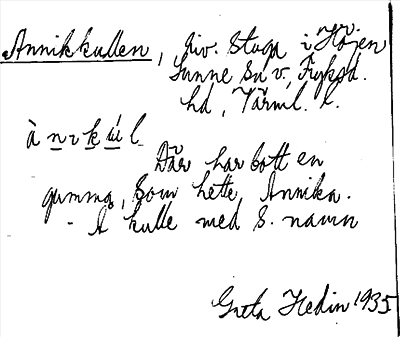 Annikkullen, riv. stuga i Ner. Höjen
Sunne sn v., Fryksd.
hd, Värml. l.
à n ɩ k ú̵ l
Där har bott en
gumma, som hette Annika.
- Å kulle med s. namn
Greta Hedin 1935